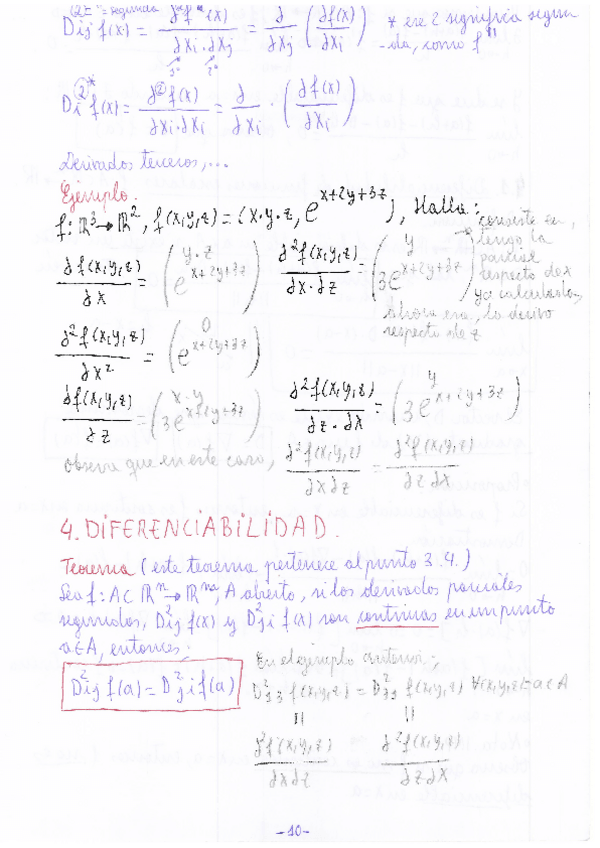 (2ª "= segunda
Dij f(x) = ∂f²(x) / ∂xi·∂xj = ∂/∂xj (∂f(x)/∂xi) * ese 2 significa segun
1º 2º -da, como f"
Di②* f(x) = ∂②f(x) / ∂xi·∂xi = ∂/∂xi · (∂f(x)/∂xi)
Derivadas terceras,...
Ejemplo.
f: ℝ³→ℝ², f(x,y,z) = (x·y·z, e^(x+2y+3z)), Halla:
∂f(x,y,z)/∂x = (y·z ; e^(x+2y+3z)) ∂²f(x,y,z)/∂x·∂z = (y ; 3e^(x+2y+3z)) → consiste en,
tengo la
parcial
respecto de x
ya calculada,
ahora esa, la derivo
respecto de z
∂²f(x,y,z)/∂x² = (0 ; e^(x+2y+3z))
∂f(x,y,z)/∂z = (x·y ; 3e^(x+2y+3z)) ∂²f(x,y,z)/∂z·∂x = (y ; 3e^(x+2y+3z))
Observa que en este caso, ∂²f(x,y,z)/∂x∂z = ∂²f(x,y,z)/∂z∂x
4. DIFERENCIABILIDAD.
Teorema (este teorema pertenece al punto 3.4.)
Sea f: A⊂ℝⁿ→ℝᵐ, A abierto, si las derivadas parciales
segundas, D²ij f(x) y D²ji f(x) son continuas en un punto
a∈A, entonces:
D²ij f(a) = D²ji f(a)
En el ejemplo anterior;
D²13 f(x,y,z) = D²31 f(x,y,z) ∀(x,y,z)=a∈A
= =
∂²f(x,y,z)/∂x∂z ∂²f(x,y,z)/∂z∂x
-10-